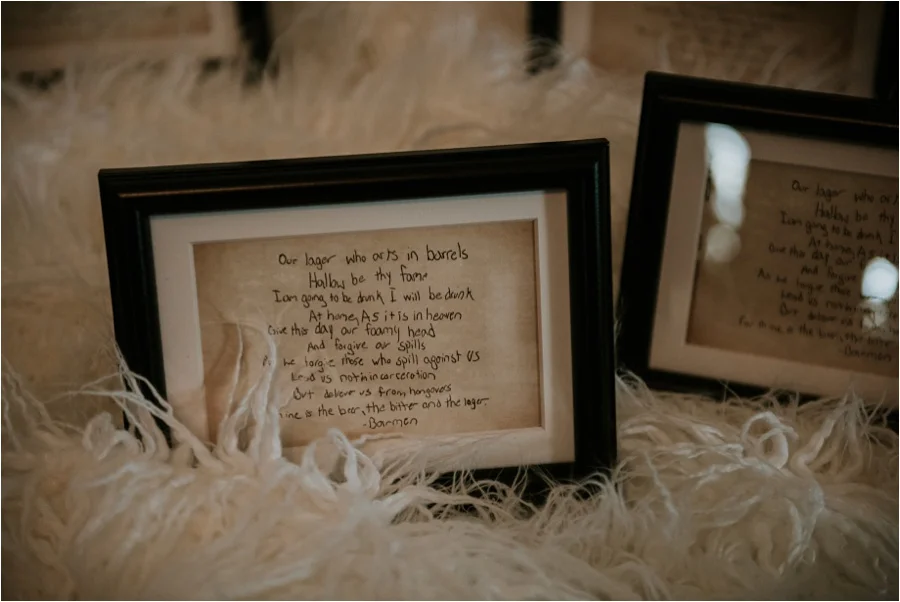 Our lager who arts in barrels
Hallow be thy fame
I am going to be drunk I will be drunk
At home, As it is in heaven
Give this day our foamy head
And forgive our spills
As we forgive those who spill against us
Lead us not in incarceration
But deliver us from hangovers
is the beer, the bitter and the lager.
-Barmen
Our lager who arts
Hallow be thy
I am going to be drunk I
At home, As it is
Give this day our
And forgive
As we forgive those
Lead us not in in
But deliver us
For thine is the beer, the bitter
-Barmen